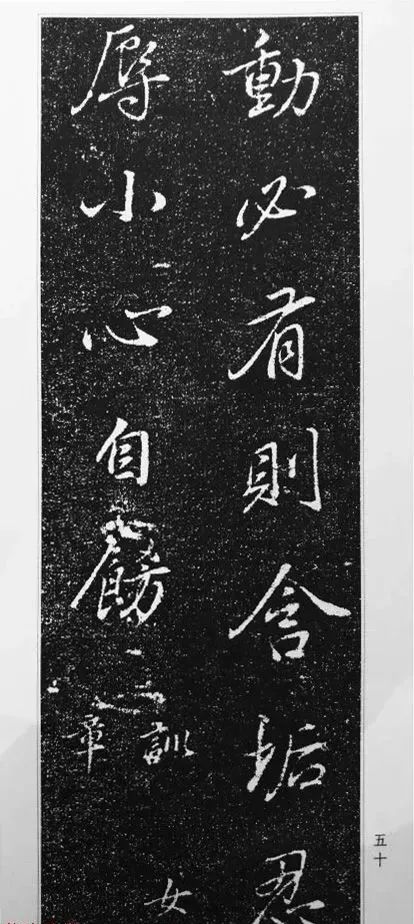 動必有則含垢忍
辱小心自飭
訓女
章
五十